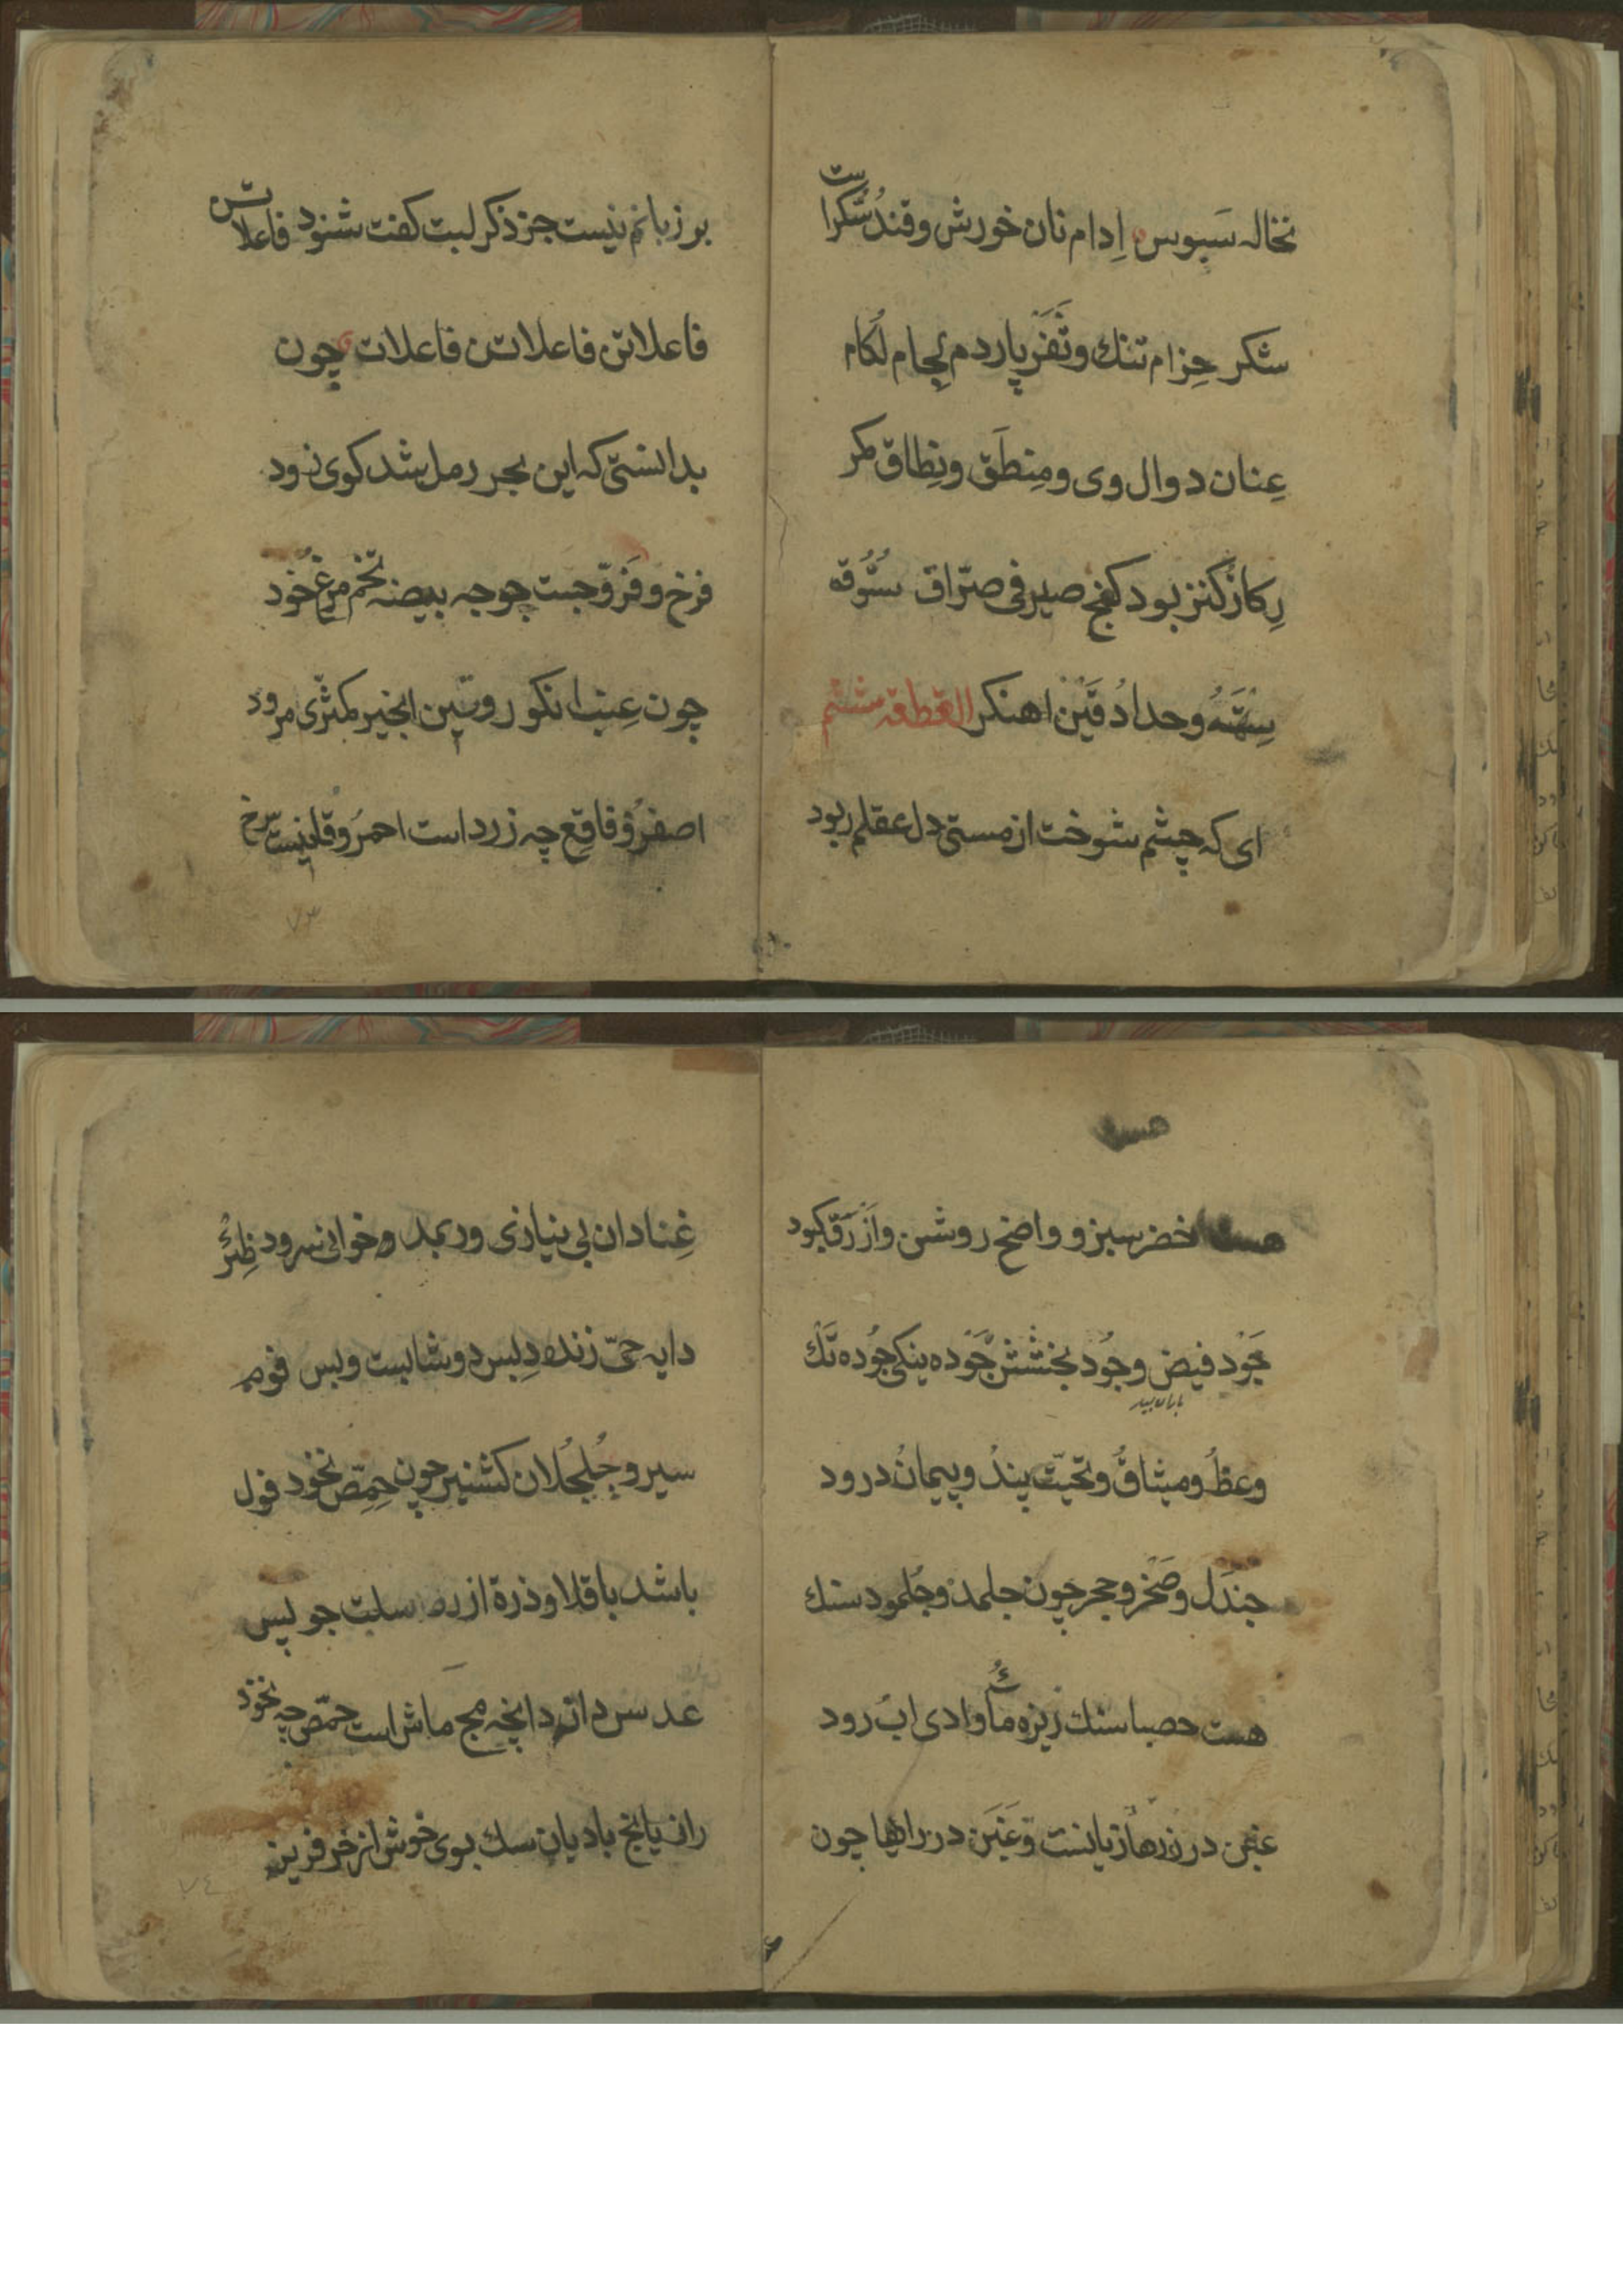 نخاله سَبوس اِدام نان خورش و قندُ شکرا ست
شکر حِزام تنك و ثَفَر پاردم لجام لُکام
عِنان دوال وی و مِنطَق و نِطاق کمر
رِکاز کنز بود کفچ صیرفی صرّاف سُوُقه
وحدادُ قَیْن اهنکر القطعه ششم
ای که چشم شوخت از مستی دل عقلم ربود
بر زبانم نیست جز ذکر لبت کفت شنود فاعلاتن
فاعلاتن فاعلاتن فاعلات چون
بدانستی که این بحر رمل شد کوی زود
فرخ و فرّوجست چوجه بیضه تخم مرغ خود
چون عِنب انکور و تین انجیر کمثری مرود
اصفرُ و فاقع چه زرد است احمرُ و قانیست سرخ
هست
هست اخضر سبز و واضح روشن و اَزْرَق کبود
جَوْد فیض و جُود بخشش جَوْده نیکی جُوده تك
باران بسیار
وعظُ و میثاقُ و تحیّت پندُ و پیمانُ درود
جَندَل و صَخْر و حجر چون جلمد و جُلمود سنك
هست حصبا سنك ریزه مأ وادی ابُ رود
غبن در زرها زیانست و غَبَن در رایها چون
غِنا دان بی نیازی ور بمد وخوانی سرود ظِئرُ
دایه حیّ زنده دِبس دوشابست و بس فوم
سیر و جُلجُلان کشنیز چون حِمِّص نخود فول
باشد باقلا و ذرة ارزن سلت جو پس
عدس دان دانچه مج ماش است حمّص چه نخود
رازیانج بادیان سك بوی خوش از خر فرین